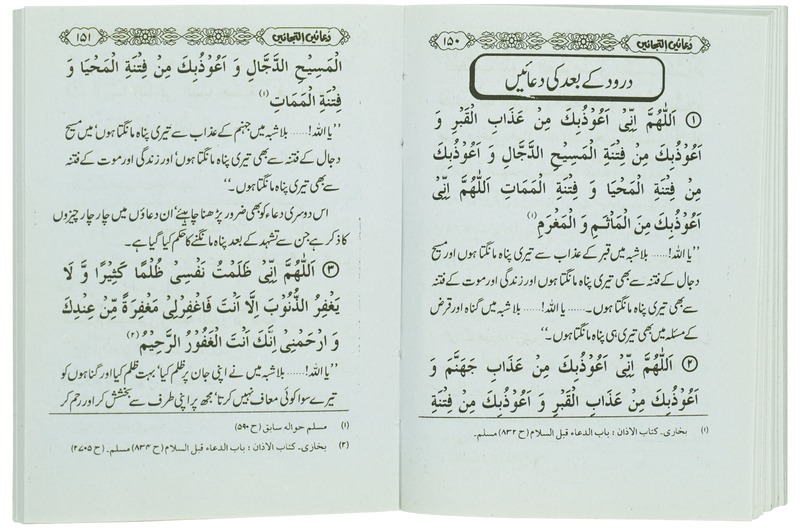 دعائیں التجائیں
۱۵۰
درود کے بعد کی دعائیں
① اَللّٰهُمَّ اِنِّیْ اَعُوْذُبِكَ مِنْ عَذَابِ الْقَبْرِ وَ
اَعُوْذُبِكَ مِنْ فِتْنَةِ الْمَسِيْحِ الدَّجَّالِ وَ اَعُوْذُبِكَ
مِنْ فِتْنَةِ الْمَحْيَا وَ فِتْنَةِ الْمَمَاتِ اَللّٰهُمَّ اِنِّیْ
اَعُوْذُبِكَ مِنَ الْمَاْثَمِ وَ الْمَغْرَمِ (۱)
’’یا اللہ!...... بلاشبہ میں قبر کے عذاب سے تیری پناہ مانگتا ہوں اور مسیح
دجال کے فتنہ سے بھی تیری پناہ مانگتا ہوں اور زندگی اور موت کے فتنہ
سے بھی تیری پناہ مانگتا ہوں۔ ...... یا اللہ! ...... بلاشبہ میں گناہ اور قرض
کے مسئلہ میں بھی تیری ہی پناہ مانگتا ہوں۔‘‘
② اَللّٰهُمَّ اِنِّیْ اَعُوْذُبِكَ مِنْ عَذَابِ جَهَنَّمَ وَ
اَعُوْذُبِكَ مِنْ عَذَابِ الْقَبْرِ وَ اَعُوْذُبِكَ مِنْ فِتْنَةِ
(۱) بخاری۔ کتاب الاذان : باب الدعاء قبل السلام (ح ۸۳۲) مسلم۔
دعائیں التجائیں
۱۵۱
الْمَسِيْحِ الدَّجَّالِ وَ اَعُوْذُبِكَ مِنْ فِتْنَةِ الْمَحْيَا وَ
فِتْنَةِ الْمَمَاتِ (۱)
’’یا اللہ!...... بلاشبہ میں جہنم کے عذاب سے تیری پناہ مانگتا ہوں‘ میں مسیح
دجال کے فتنہ سے بھی تیری پناہ مانگتا ہوں‘ اور زندگی اور موت کے فتنہ
سے بھی تیری پناہ مانگتا ہوں۔‘‘
اس دوسری دعاء کو بھی ضرور پڑھنا چاہیئے‘ ان دعاؤں میں چار چار چیزوں
کا ذکر ہے جن سے تشہد کے بعد پناہ مانگنے کا حکم کیا گیا ہے۔
③ اَللّٰهُمَّ اِنِّیْ ظَلَمْتُ نَفْسِیْ ظُلْمًا كَثِيْرًا وَّ لَا
يَغْفِرُ الذُّنُوْبَ اِلَّا اَنْتَ فَاغْفِرْلِیْ مَغْفِرَةً مِّنْ عِنْدِكَ
وَ ارْحَمْنِیْ اِنَّكَ اَنْتَ الْغَفُوْرُ الرَّحِيْمُ (۲)
’’یا اللہ!...... بلاشبہ میں نے اپنی جان پر ظلم کیا‘ بہت ظلم کیا اور گناہوں کو
تیرے سوا کوئی معاف نہیں کرتا‘ مجھ پر اپنی طرف سے بخشش کر اور رحم کر
(۱) مسلم حوالہ سابق (ح ۵۹۰)
(۲) بخاری۔ کتاب الاذان : باب الدعاء قبل السلام (ح ۸۳۴) مسلم۔ (ح ۲۷۰۵)